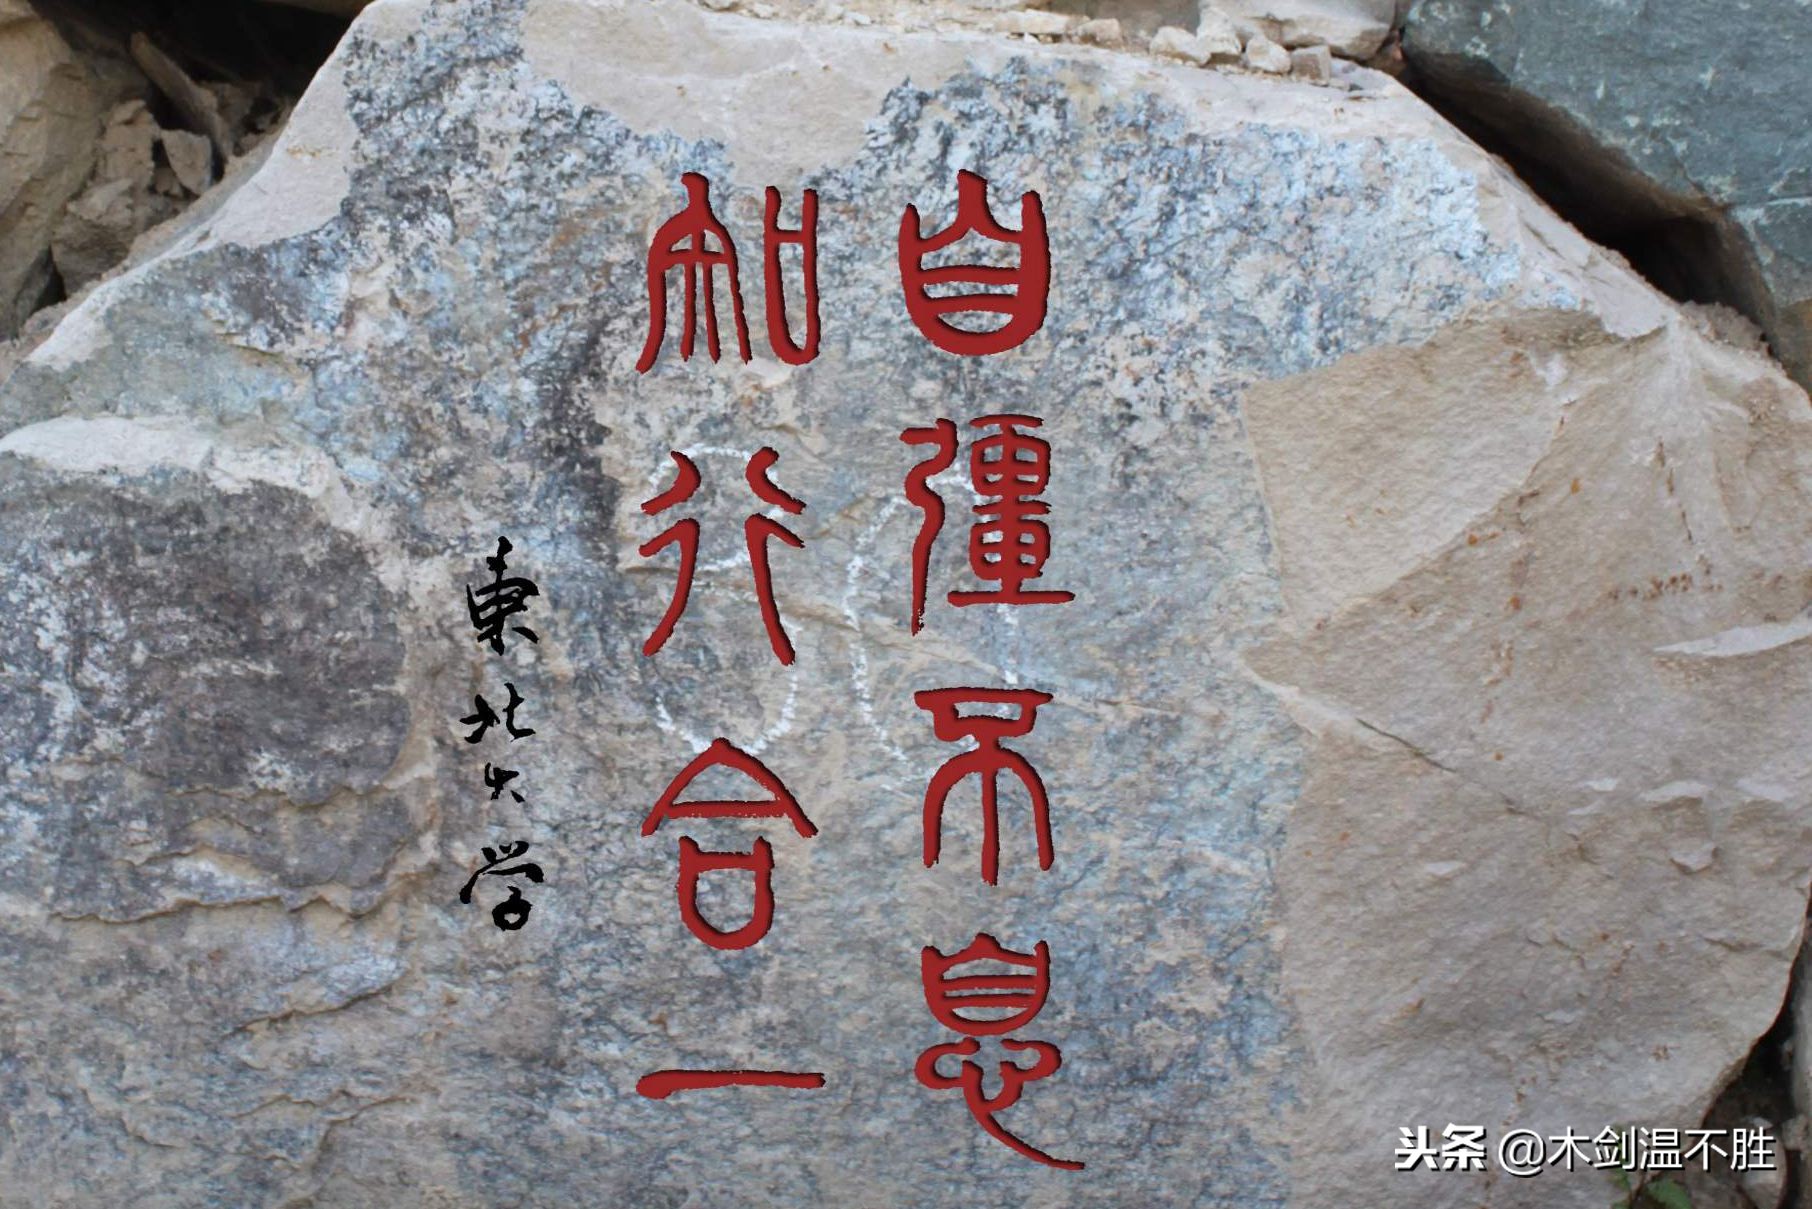 自彊不息
知行合一
東北大学
头条 @木剑温不胜